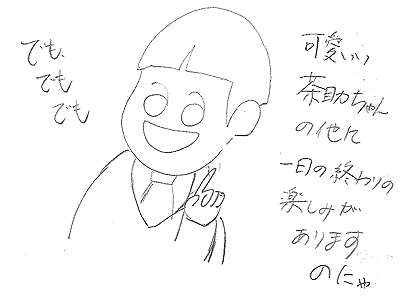 でも、
でも
でも
可愛いい
茶助ちゃん
の他に
一日の終わりの
楽しみが
あります
のにゃ